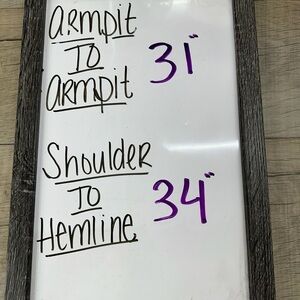 armpit
TO 31"
armpit
Shoulder
TO 34"
Hemline